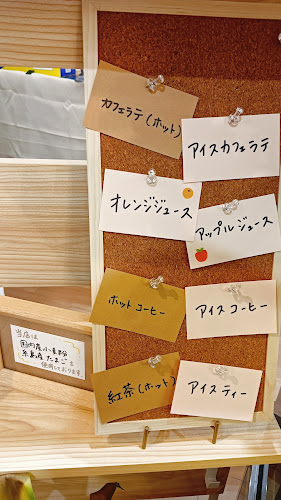 カフェラテ(ホット)
アイスカフェラテ
オレンジジュース
アップルジュース
ホットコーヒー
アイスコーヒー
紅茶(ホット)
アイスティー
当店は
国内産小麦粉
糸島産たまごを
使用しております